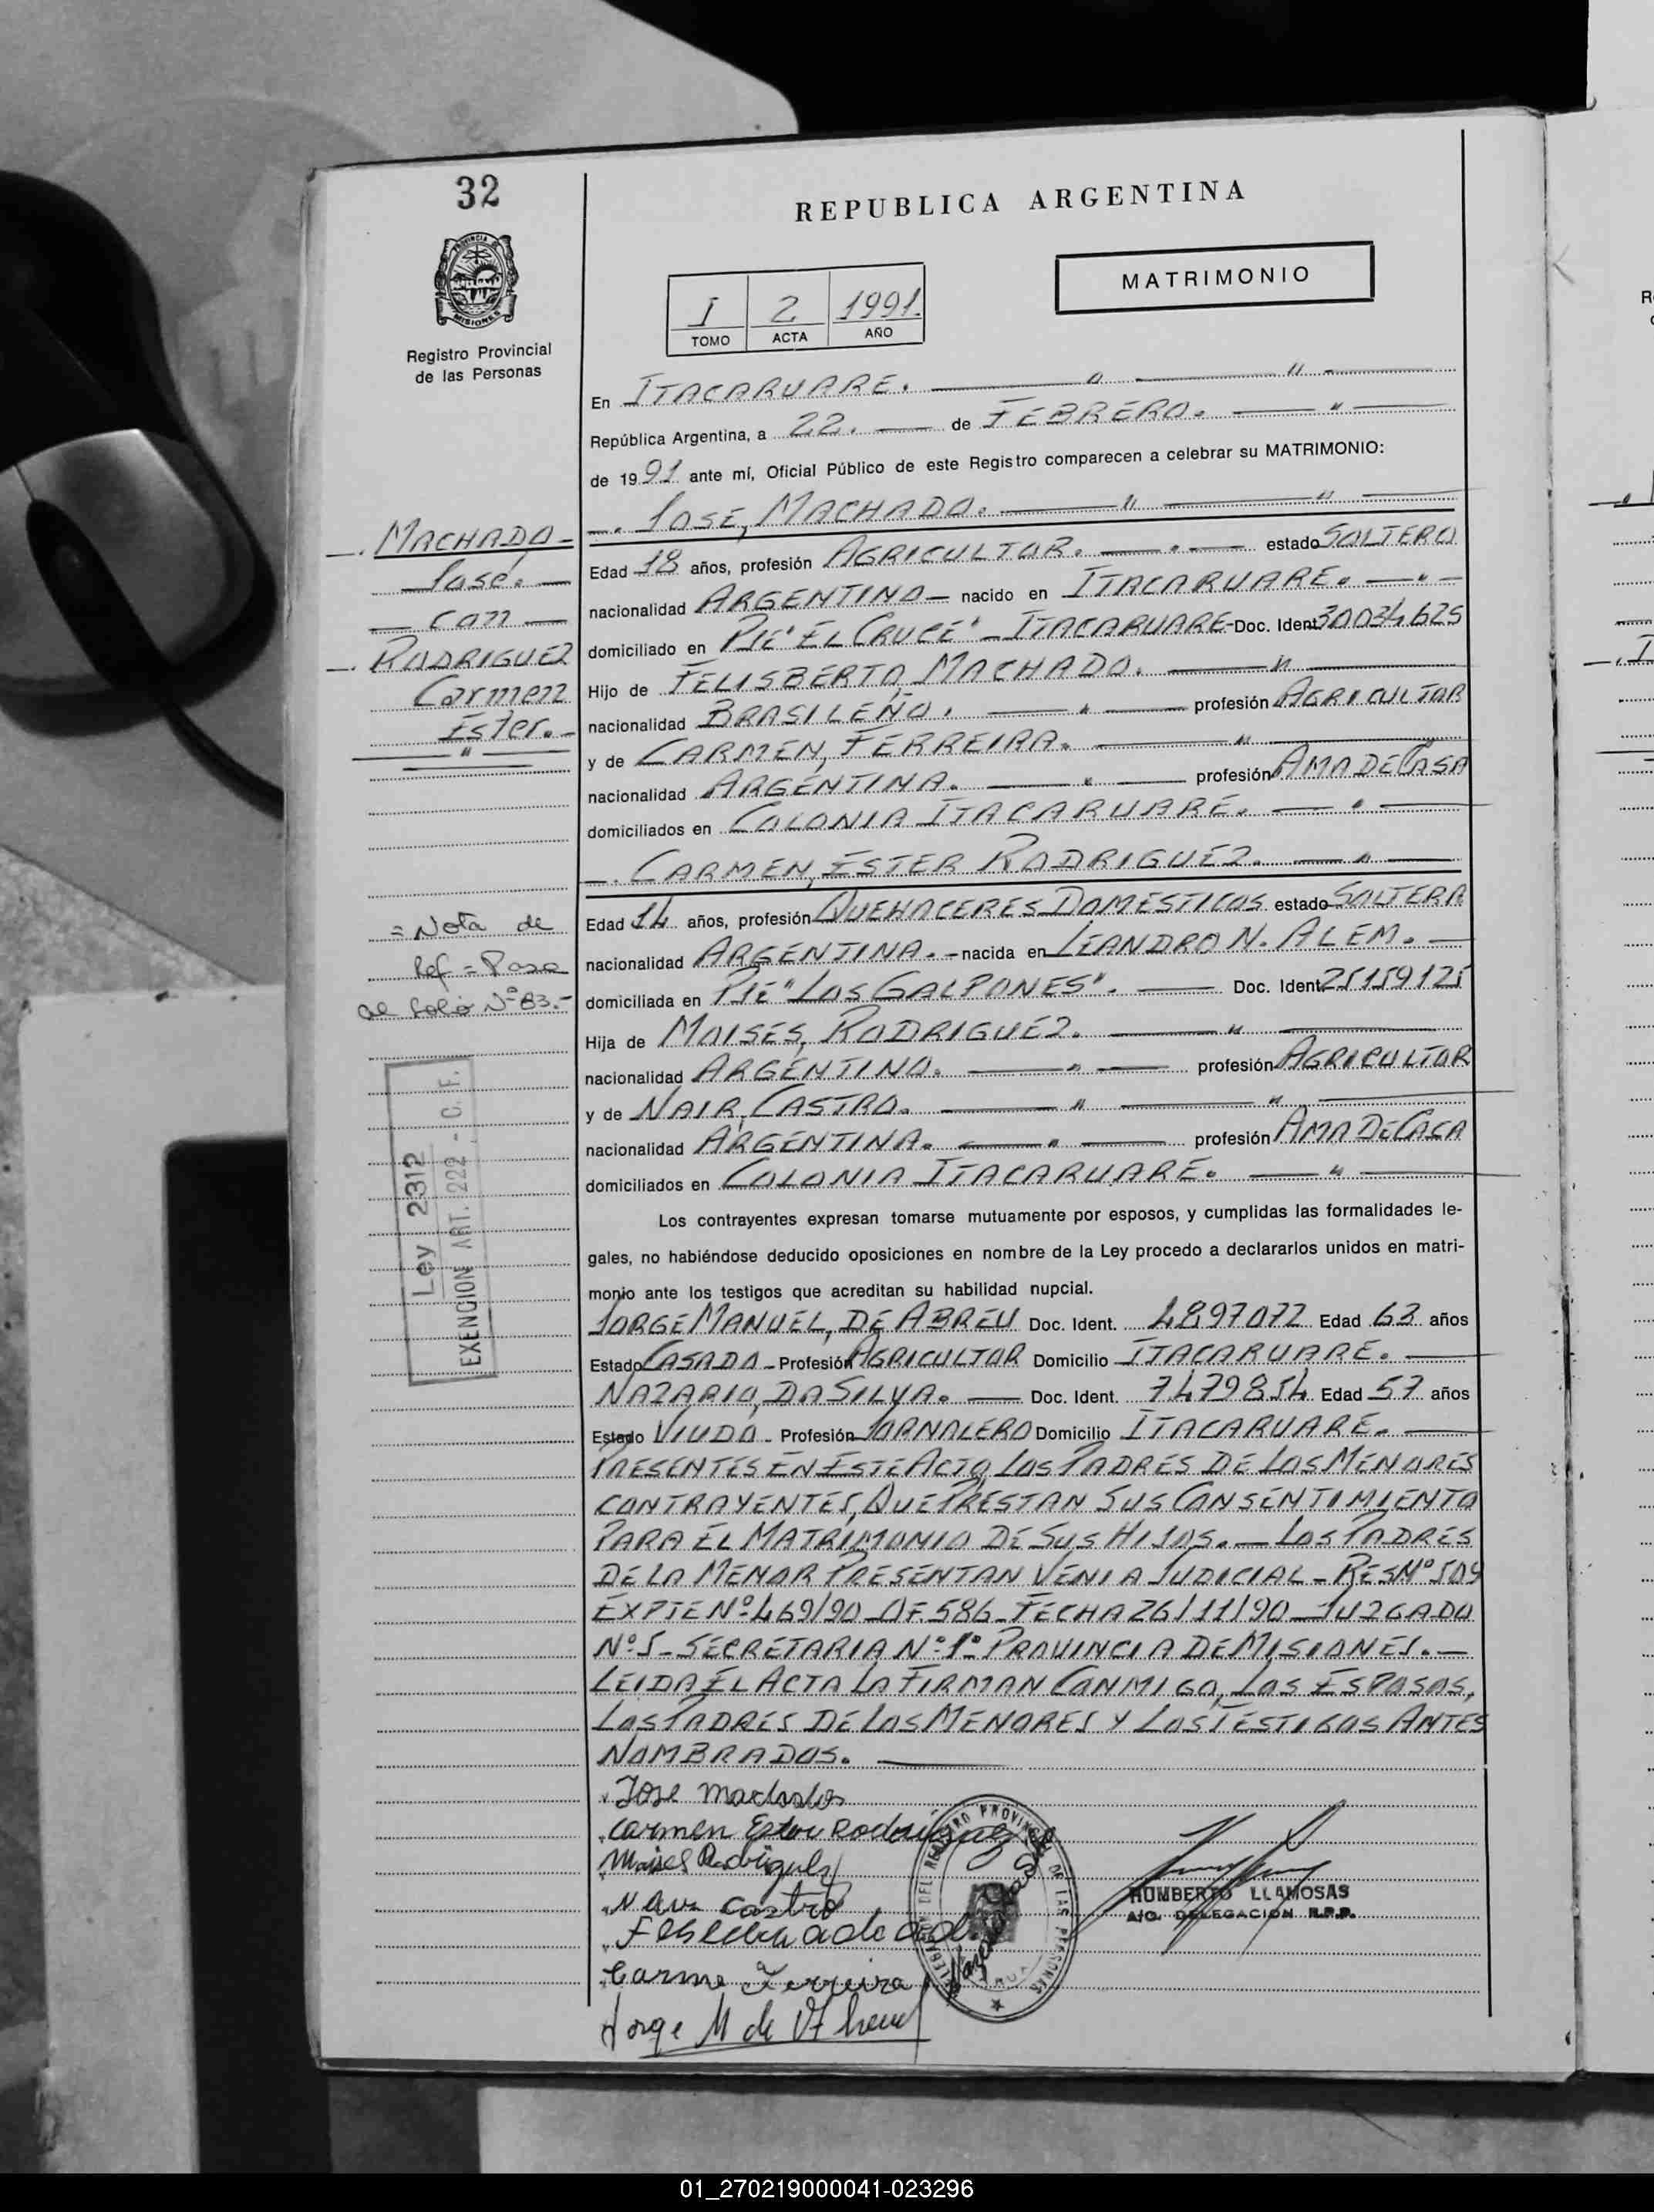 32
REPUBLICA ARGENTINA
PROVINCIA DE MISIONES
Registro Provincial
de las Personas
MATRIMONIO
I 2 1991.
TOMO ACTA AÑO
En ITACARUARE.
República Argentina, a 22. de FEBRERO.
de 1991 ante mí, Oficial Público de este Registro comparecen a celebrar su MATRIMONIO:
JOSE, MACHADO.
MACHADO
José.
con
RODRIGUEZ
Carmen
Ester.
Edad 18 años, profesión AGRICULTOR. estado SOLTERO
nacionalidad ARGENTINO nacido en ITACARUARE.
domiciliado en PJE "EL CRUCE" - ITACARUARE - Doc. Ident 30034625
Hijo de FELISBERTO MACHADO.
nacionalidad BRASILEÑO. profesión AGRICULTOR
y de CARMEN, FERREIRA.
nacionalidad ARGENTINA. profesión AMA DE CASA
domiciliados en COLONIA ITACARUARE.
CARMEN, ESTER RODRIGUEZ.
Edad 14 años, profesión QUEHACERES DOMESTICOS estado SOLTERA
nacionalidad ARGENTINA. - nacida en LEANDRO N. ALEM.
domiciliada en PJE "LOS GALPONES". Doc. Ident 25159125
Hija de MOISES, RODRIGUEZ.
nacionalidad ARGENTINO. profesión AGRICULTOR
y de NAIR, CASTRO.
nacionalidad ARGENTINA. profesión AMA DE CASA
domiciliados en COLONIA ITACARUARE.
= Nota de
Ref = Pase
al folio Nº 83.-
Ley 2312
EXENCION ART. 222 - C. F.
Los contrayentes expresan tomarse mutuamente por esposos, y cumplidas las formalidades le-
gales, no habiéndose deducido oposiciones en nombre de la Ley procedo a declararlos unidos en matri-
monio ante los testigos que acreditan su habilidad nupcial.
JORGE MANUEL, DE ABREU Doc. Ident. 4897072 Edad 63 años
Estado CASADO - Profesión AGRICULTOR Domicilio ITACARUARE.
NAZARIO, DA SILVA. Doc. Ident. 7479854 Edad 57 años
Estado VIUDO - Profesión JORNALERO Domicilio ITACARUARE.
PRESENTES EN ESTE ACTO, LOS PADRES DE LOS MENORES
CONTRAYENTES, QUE PRESTAN SUS CONSENTIMIENTO
PARA EL MATRIMONIO DE SUS HIJOS. - LOS PADRES
DE LA MENOR PRESENTAN VENIA JUDICIAL - RES Nº 509
EXPTE Nº 469/90 - OF. 586 - FECHA 26/11/90 - JUZGADO
Nº 5 - SECRETARIA Nº 1º PROVINCIA DE MISIONES. -
LEIDA EL ACTA LA FIRMAN CONMIGO, LOS ESPOSOS,
LOS PADRES DE LOS MENORES Y LOS TESTIGOS ANTES
NOMBRADOS.
Jose machado
Carmen Ester Rodriguez
Moises Rodriguez
castro
Carme Ferreira
Jorge M de Abreu
HUMBERTO LLAMOSAS
A/C. DELEGACION R.P.P.
01_270219000041-023296